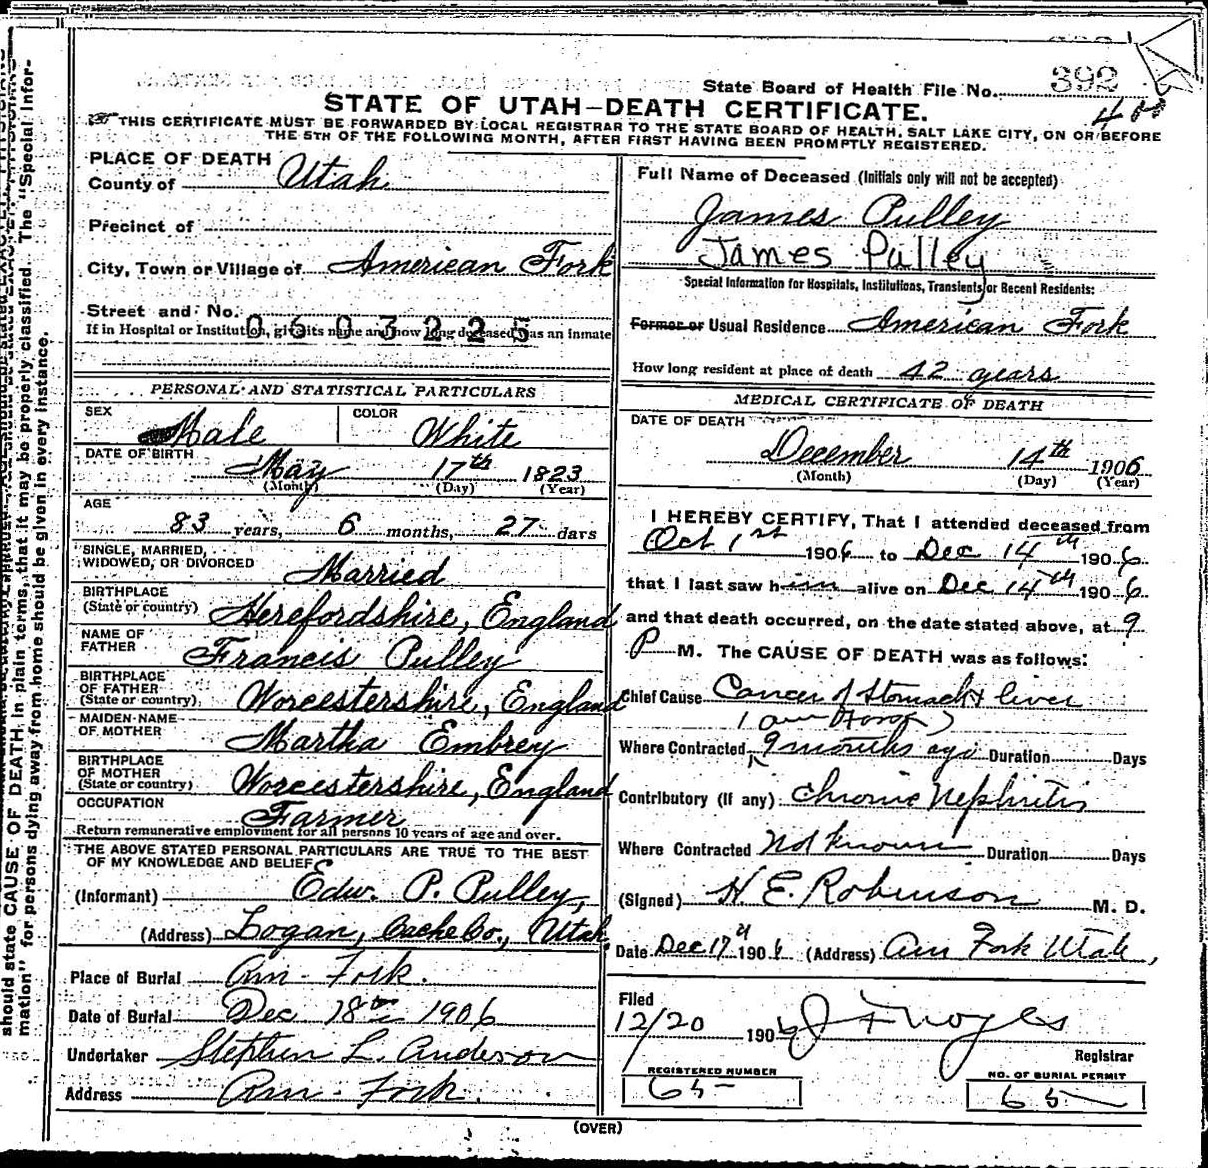 State Board of Health File No. 392
400
STATE OF UTAH—DEATH CERTIFICATE.
THIS CERTIFICATE MUST BE FORWARDED BY LOCAL REGISTRAR TO THE STATE BOARD OF HEALTH, SALT LAKE CITY, ON OR BEFORE
THE 5TH OF THE FOLLOWING MONTH, AFTER FIRST HAVING BEEN PROMPTLY REGISTERED.
PLACE OF DEATH
County of Utah
Precinct of
City, Town or Village of American Fork
Street and No.
0603225
If in Hospital or Institution, give its name and how long deceased was an inmate
PERSONAL AND STATISTICAL PARTICULARS
SEX Male COLOR White
DATE OF BIRTH May 17th 1823
(Month) (Day) (Year)
AGE
83 years, 6 months, 27 days
SINGLE, MARRIED,
WIDOWED, OR DIVORCED Married
BIRTHPLACE
(State or country) Herefordshire, England
NAME OF
FATHER Francis Pulley
BIRTHPLACE
OF FATHER
(State or country) Worcestershire, England
MAIDEN NAME
OF MOTHER Martha Embrey
BIRTHPLACE
OF MOTHER
(State or country) Worcestershire, England
OCCUPATION Farmer
Return remunerative employment for all persons 10 years of age and over.
THE ABOVE STATED PERSONAL PARTICULARS ARE TRUE TO THE BEST
OF MY KNOWLEDGE AND BELIEF
(Informant) Edw. P. Pulley,
(Address) Logan, Cache Co., Utah.
Place of Burial Am. Fork.
Date of Burial Dec 18th 1906
Undertaker Stephen L. Anderson
Address Am. Fork.
Full Name of Deceased (Initials only will not be accepted)
James Pulley
James Pulley
Special Information for Hospitals, Institutions, Transients, or Recent Residents:
Former or Usual Residence American Fork
How long resident at place of death 42 years
MEDICAL CERTIFICATE OF DEATH
DATE OF DEATH
December 14th 1906
(Month) (Day) (Year)
I HEREBY CERTIFY, That I attended deceased from
Oct 1st 1906 to Dec 14th 1906
that I last saw him alive on Dec 14th 1906
and that death occurred, on the date stated above, at 9
P M. The CAUSE OF DEATH was as follows:
Chief Cause Cancer of Stomach & liver
Where Contracted 9 months ago Duration Days
Contributory (if any) Chronic Nephritis
Where Contracted Not known Duration Days
(Signed) H. E. Robinson M. D.
Date Dec 17th 1906 (Address) Am Fork Utah,
Filed
12/20 1906 J F Noyes
Registrar
REGISTERED NUMBER
65
NO. OF BURIAL PERMIT
65
(OVER)
should state CAUSE OF DEATH in plain terms, that it may be properly classified. The "Special Infor-
mation" for persons dying away from home should be given in every instance.